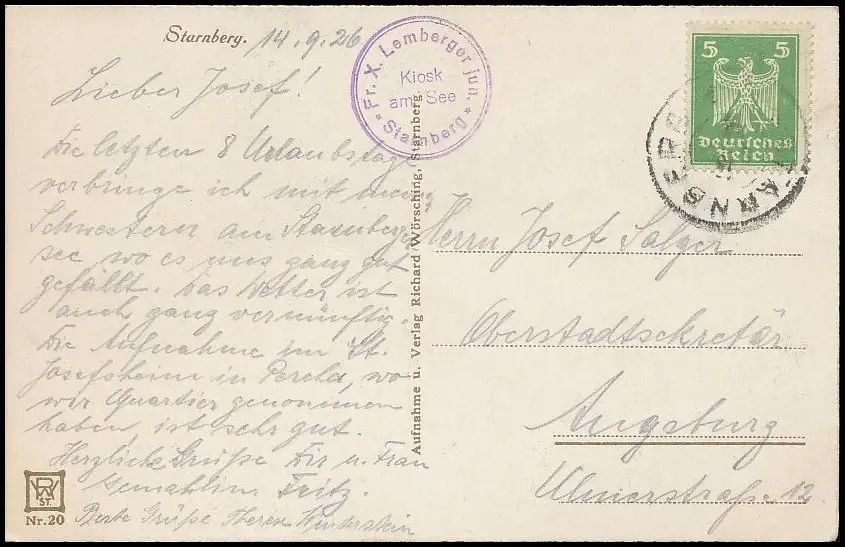 Starnberg. 14.9.26
Lieber Josef!
Die letzten 8 Urlaubstage
verbringe ich mit meinen
Schwestern am Starnberger
see wo es uns ganz gut
gefällt. Das Wetter ist
auch ganz vernünftig.
Die Aufnahme im St.
Josefsheim in Percha, wo
wir Quartier genommen
haben, ist sehr gut.
Herzliche Grüße Dir u. Frau
Gemahlin Fritz.
Beste Grüße Winterstein
WR
ST.
Nr. 20
Fr. X. Lemberger jun.
Kiosk
am See
* Starnberg *
Aufnahme u. Verlag Richard Wörsching, Starnberg.
5 5
Deutsches
Reich
STARNBERG
Herrn Josef Salger
Oberstadtsekretär
Augsburg
Ulmerstraße 12